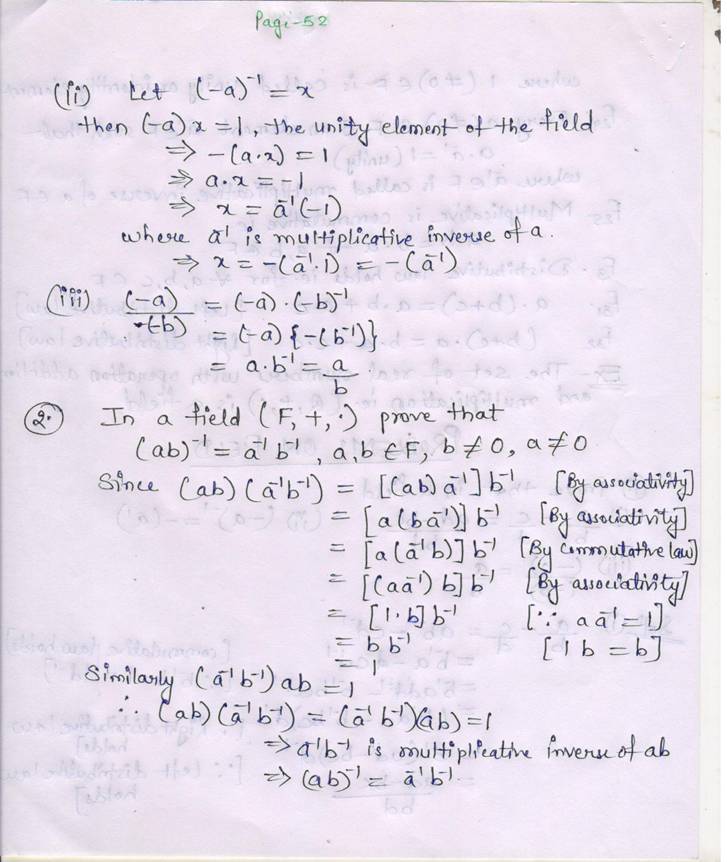 Page-52
(ii) Let (-a)⁻¹ = x
then (-a)x = 1, the unity element of the field
⇒ -(a·x) = 1
⇒ a·x = -1
⇒ x = a⁻¹(-1)
where a⁻¹ is multiplicative inverse of a.
⇒ x = -(a⁻¹·1) = -(a⁻¹)
(iii) (-a)/-(b) = (-a)·(-b)⁻¹
= (-a){-(b⁻¹)}
= a·b⁻¹ = a/b
2. In a field (F, +, ·) prove that
(ab)⁻¹ = a⁻¹b⁻¹, a,b ∈ F, b ≠ 0, a ≠ 0
Since (ab)(a⁻¹b⁻¹) = [(ab)a⁻¹]b⁻¹ [By associativity]
= [a(ba⁻¹)]b⁻¹ [By associativity]
= [a(a⁻¹b)]b⁻¹ [By commutative law]
= [(aa⁻¹)b]b⁻¹ [By associativity]
= [1·b]b⁻¹ [∵ aa⁻¹ = 1]
= bb⁻¹ [1b = b]
= 1
Similarly (a⁻¹b⁻¹)ab = 1
∴ (ab)(a⁻¹b⁻¹) = (a⁻¹b⁻¹)(ab) = 1
⇒ a⁻¹b⁻¹ is multiplicative inverse of ab
⇒ (ab)⁻¹ = a⁻¹b⁻¹.